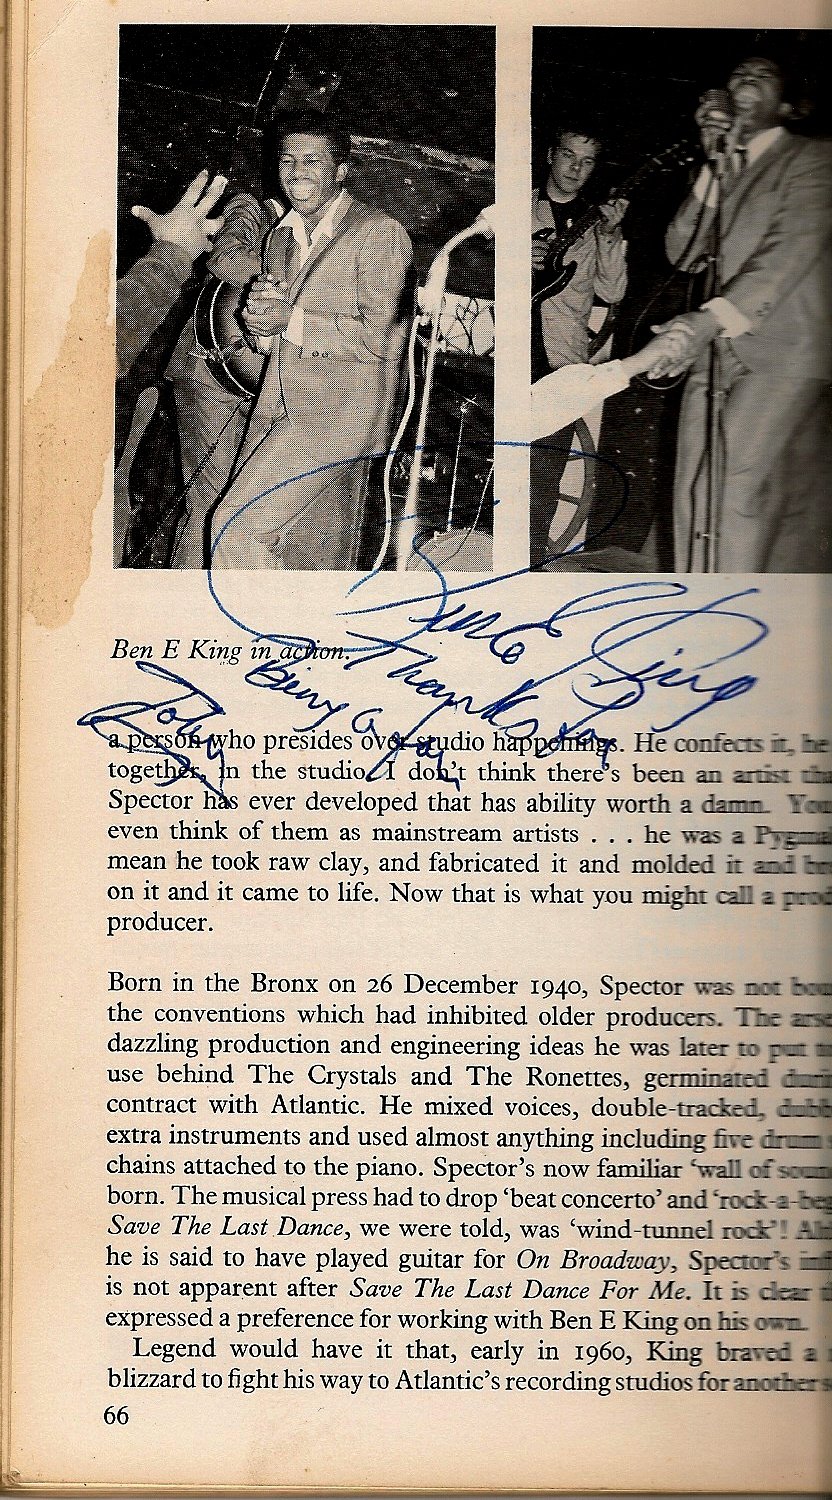 Ben E King
Thanks for
Being a fan
John
Ben E King in action.
a person who presides over studio happenings. He confects it, he
together, in the studio. I don't think there's been an artist tha
Spector has ever developed that has ability worth a damn. You
even think of them as mainstream artists . . . he was a Pygma
mean he took raw clay, and fabricated it and molded it and br
on it and it came to life. Now that is what you might call a prod
producer.
Born in the Bronx on 26 December 1940, Spector was not bou
the conventions which had inhibited older producers. The arse
dazzling production and engineering ideas he was later to put to
use behind The Crystals and The Ronettes, germinated duri
contract with Atlantic. He mixed voices, double-tracked, dubb
extra instruments and used almost anything including five drum
chains attached to the piano. Spector's now familiar 'wall of soun
born. The musical press had to drop 'beat concerto' and 'rock-a-beg
Save The Last Dance, we were told, was 'wind-tunnel rock'! Alt
he is said to have played guitar for On Broadway, Spector's inf
is not apparent after Save The Last Dance For Me. It is clear
expressed a preference for working with Ben E King on his own.
Legend would have it that, early in 1960, King braved a
blizzard to fight his way to Atlantic's recording studios for another s
66